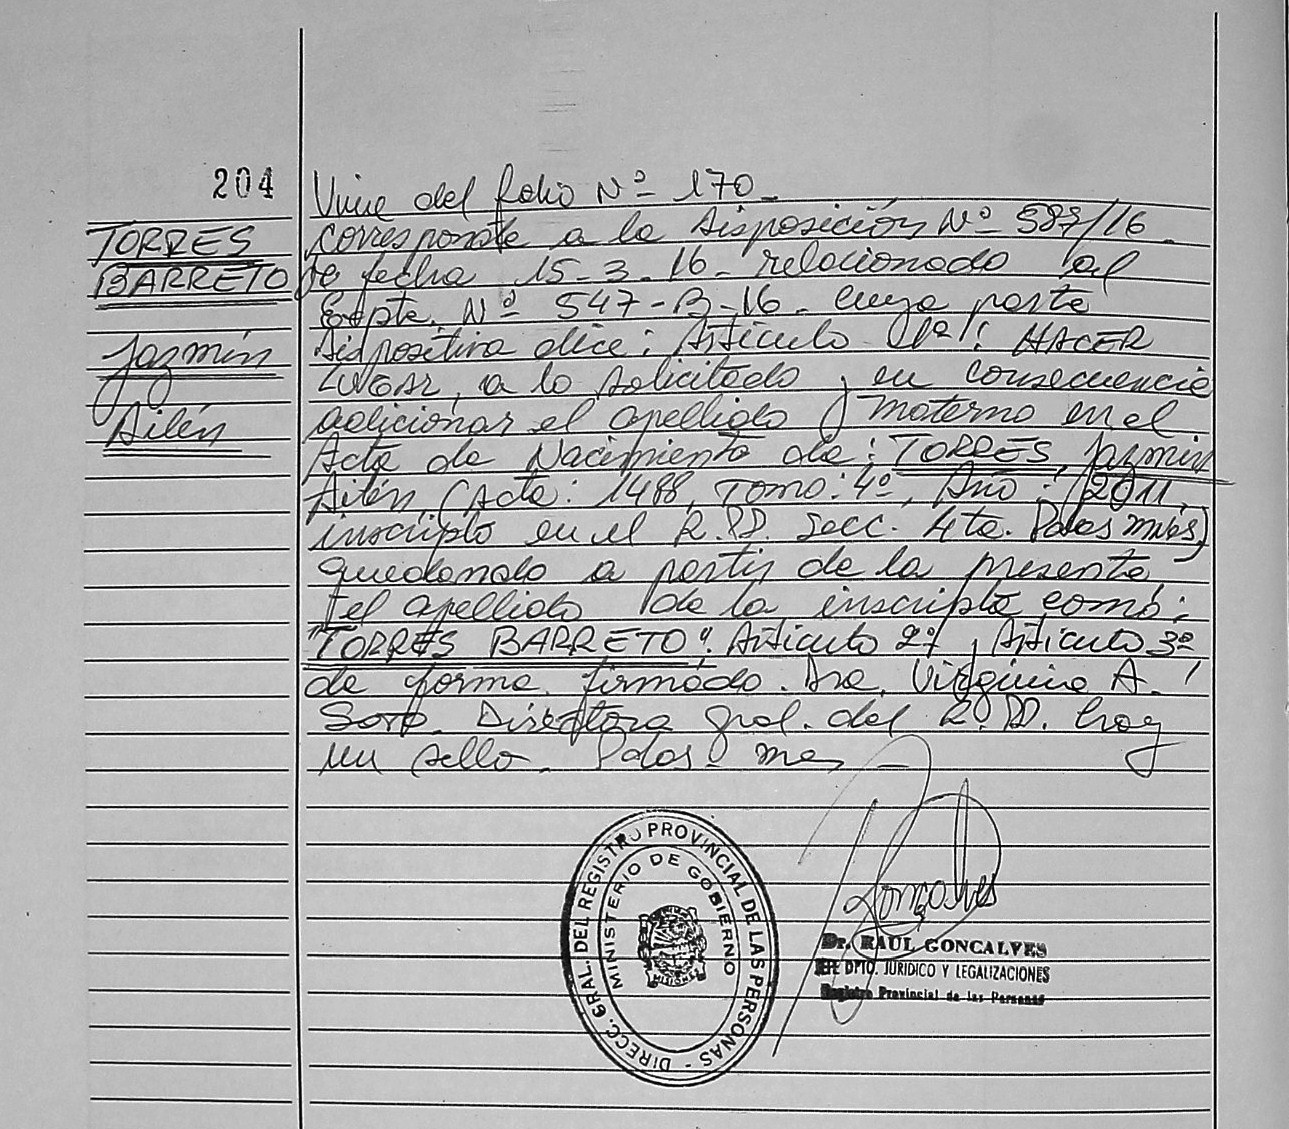 204
TORRES
BARRETO
Jazmín
Ailén
Viene del folio Nº 170_
corresponde a la disposición Nº 587/16_
de fecha 15-3-16- relacionado al
Expte. Nº 547-B-16- cuya parte
dispositiva dice: Artículo 1º: HACER
LUGAR, a lo solicitado y en consecuencia
adicionar el apellido materno en el
Acta de Nacimiento de: TORRES, Jazmín
Ailén (Acta: 1488, Tomo: 4º, Año: 2011,
inscripto en el R.PP. Secc. 4ta. Pdas mnes)
quedando a partir de la presente
el apellido de la inscripta como:
"TORRES BARRETO". Artículo 2º, Artículo 3º
de forma. firmado. Dra. Virginia A.
Soto. Directora gral. del R.PP. hay
un sello. Pdas- mes_
DIRECC. GRAL. DEL REGISTRO PROVINCIAL DE LAS PERSONAS -
MINISTERIO DE GOBIERNO
MISIONES
Goncalves
Dr. RAUL GONCALVES
JEFE DPTO. JURIDICO Y LEGALIZACIONES
Registro Provincial de las Personas